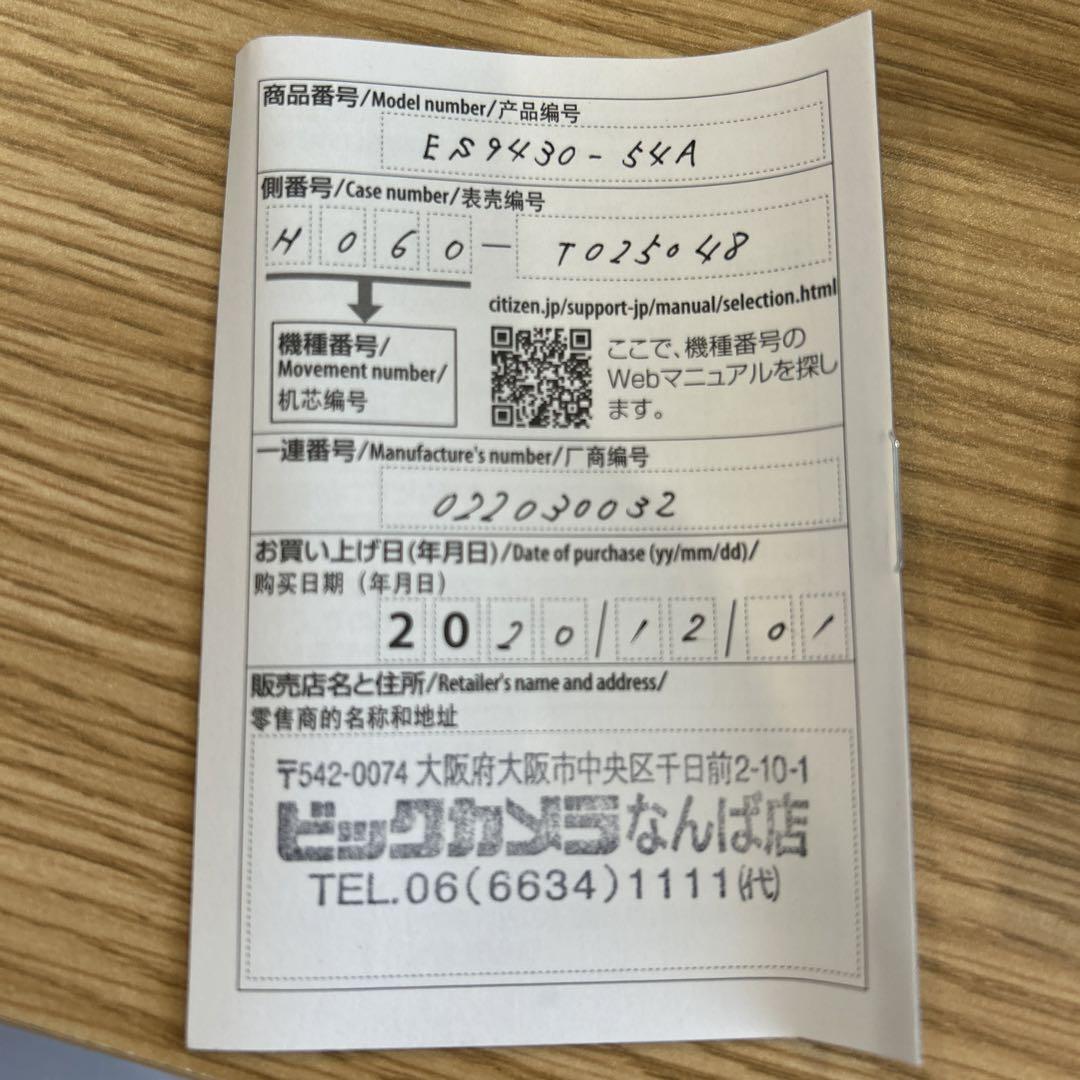 商品番号/Model number/产品编号
ES9430-54A
側番号/Case number/表壳编号
H060-T025048
citizen.jp/support-jp/manual/selection.html
機種番号/
Movement number/
机芯编号
ここで、機種番号の
Webマニュアルを探し
ます。
一連番号/Manufacture's number/厂商编号
022030032
お買い上げ日(年月日)/Date of purchase (yy/mm/dd)/
购买日期（年月日）
2020/12/01
販売店名と住所/Retailer's name and address/
零售商的名称和地址
〒542-0074 大阪府大阪市中央区千日前2-10-1
ビックカメラなんば店
TEL.06(6634)1111㈹